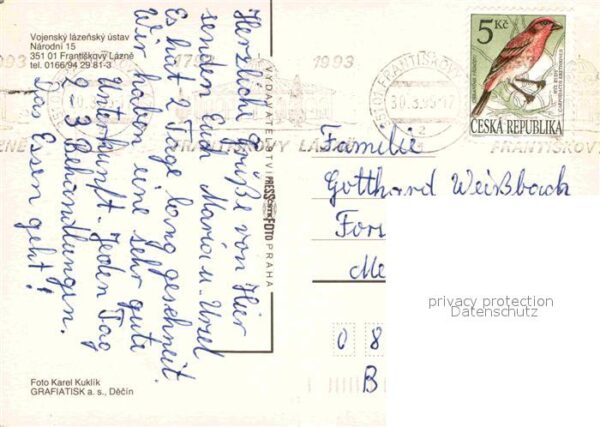 Vojenský lázeňský ústav
Národní 15
351 01 Františkovy Lázně
tel. 0166/94 29 81-3
Herzliche Grüße von Hier
senden Euch Maria u. Ursel
Es hat 2 Tage lang geschneit.
Wir haben eine sehr gute
Unterkunft. Jeden Tag
2-3 Behandlungen.
Das Essen geht!
VYDAVATELSTVÍ PRESSFOTO PRAHA
Foto Karel Kuklík
GRAFIATISK a. s., Děčín
1793
1993
FRANTIŠKOVY LÁZNĚ
FRANTIŠKOVY
30.3.95-17
5 Kč
ČESKÁ REPUBLIKA
Familie
Gotthard Weißbach
For
Me
0 8
B
privacy protection
Datenschutz